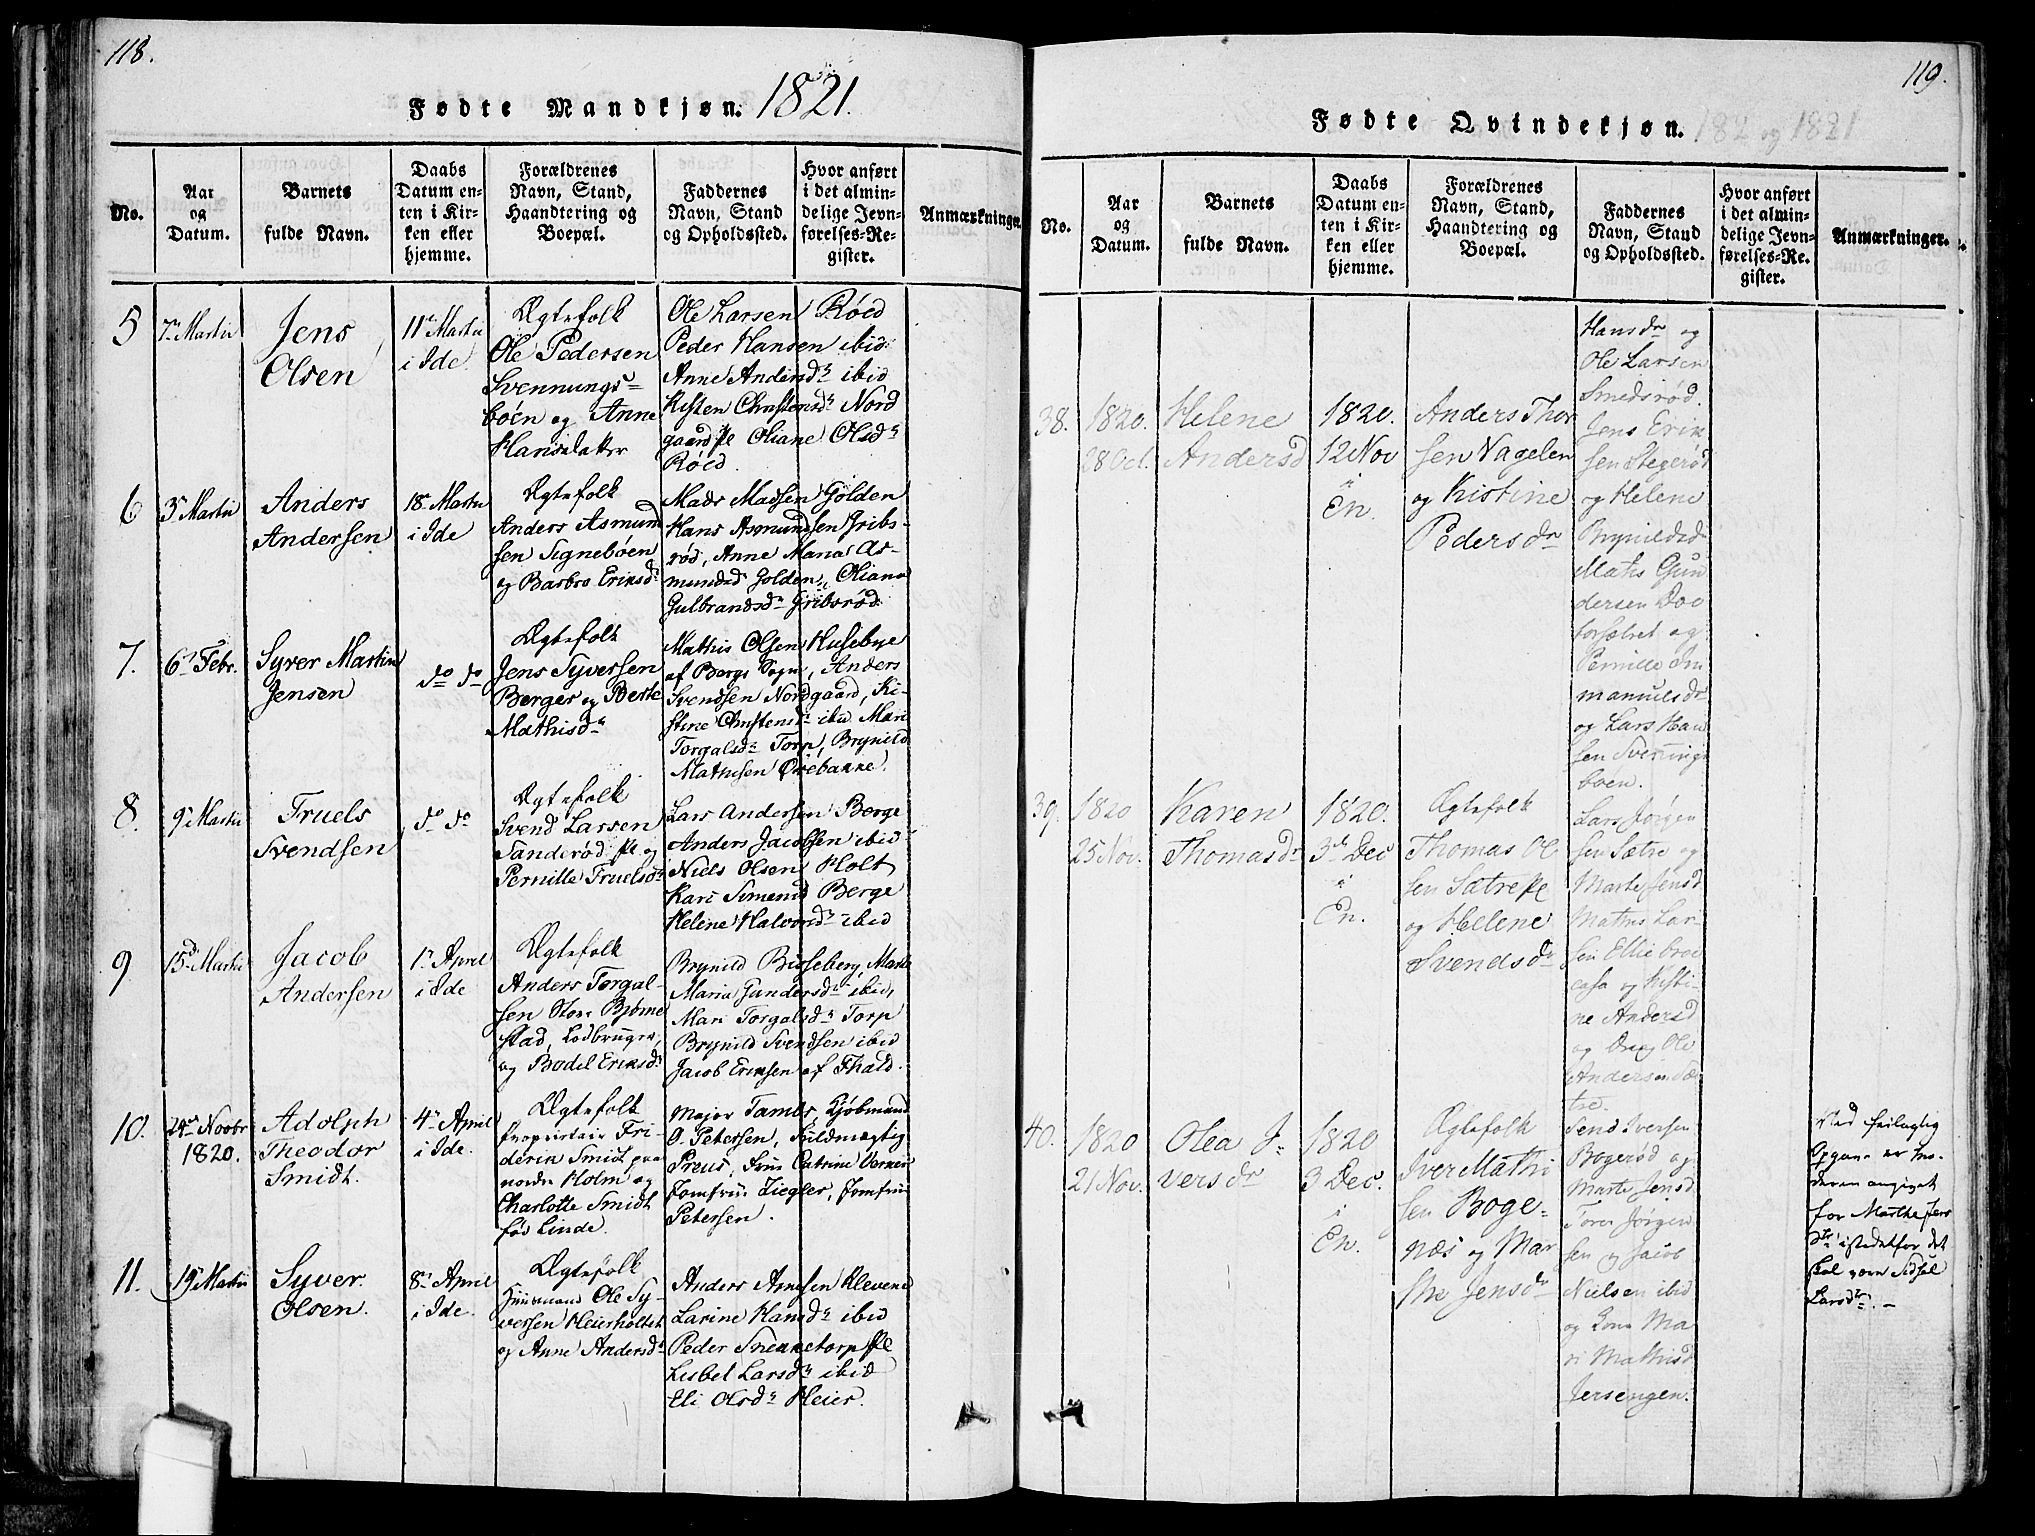 118.
Fødte Mandkjøn. 1821.
No.
Aar
og
Datum.
Barnets
fulde Navn.
Daabs
Datum en-
ten i Kir-
ken eller
hjemme.
Forældrenes
Navn, Stand,
Haandtering og
Boepæl.
Faddernes
Navn, Stand
og Opholdssted.
Hvor anført
i det almin-
delige Jevn-
førelses-Re-
gister.
Anmærkninger.
5
7de Martii
Jens
Olsen
11te Martii
i Ide
Ægtefolk
Ole Pedersen
Svennungs-
böen og Anne
Hansdatter
Ole Larsen Röed
Peder Hansen ibid
Anne Andersdr ibid
Kisten Christensdr Nord
gaard Pl. Oliane Olsdr
Röed
6
3de Martii
Anders
Andersen
18de Martii
i Ide
Ægtefolk
Anders Asmund
sen Signebøen
og Barbro Eriksdr
Mads Madsen Golden
Hans Asmundsen Gribs-
rød, Anne Maria As-
mundsd Golden, Oliana
Gulbrandsdr Gribsrød
7.
6te Febr.
Syver Martin
Jensen
do do
Ægtefolk
Jens Syversen
Berger og Berte
Mathisdr
Mathis Olsen Husebye
af Bergs Sogn, Anders
Svendsen Nordgaard, Ki-
stine Christensdr ibid Mari
Torgalsdr Torp, Brynild
Mathisen Ørebakke.
8.
9de Martii
Truels
Svendsen
do do
Ægtefolk
Svend Larsen
Sanderød Pl. og
Pernille Truelsdr
Lars Andersen Berge
Anders Jacobsen ibid
Niels Olsen Holt
Kari Simensd Berge
Helene Halvorsdr ibid
9
15de Martii
Jacob
Andersen
1te April
i Ide
Ægtefolk
Anders Torgal-
sen Store Bjørne
stad, Lodbruger,
og Bodel Eriksdr
Brynild Bisseberg, Marte
Maria Gundersdr ibid,
Mari Torgalsdr Torp
Brynild Svendsen ibid
Jacob Eriksen af Thald.
10.
24de Novbr
1820.
Adolph
Theodor
Smidt.
4de April
i Ide.
Ægtefolk
Proprietair Fri-
derik Smidt paa
nordre Holm og
Charlotte Smidt
fød Linde.
Major Tambs, Kjøbmand
O. Petersen, Fuldmægtig
Preus, Frue Catrine Vernei
Jomfrue Ziegler, Jomfrue
Petersen.
11.
19de Martii
Syver
Olsen.
8de April
i Ide.
Ægtefolk
Huusmand Ole Sy-
versen Heierholtet
og Anne Andersdr
Anders Arnesen Klevene
Larine Hansdr ibid
Peder Snekketorp Pl.
Lisbet Larsdr ibid
Eli Olsdr Heier.
119.
Fødte Qvindekjøn. 182 og 1821
No.
Aar
og
Datum.
Barnets
fulde Navn.
Daabs
Datum en-
ten i Kir-
ken eller
hjemme.
Forældrenes
Navn, Stand,
Haandtering og
Boepæl.
Faddernes
Navn, Stand
og Opholdssted.
Hvor anført
i det almin-
delige Jevn-
førelses-Re-
gister.
Anmærkninger.
38.
1820.
28 Oct.
Helene
Andersd
1820.
12 Nov
i
En.
Anders Thor
sen Vagelen
og Kristine
Pedersdr
Hansdr og
Ole Larsen
Smedsrød.
Jens Erik
sen Stegerød
og Helene
Brynildsd
Matis Gun
dersen Doc
forsætret og
Pernille Im
manuelsdr
og Lars Han
sen Svennings
boen.
39.
1820
25 Nov.
Karen
Thomasdr
1820.
3de Dec
i
En.
Ægtefolk
Thomas Ol
sen Sætre Pl.
og Helene
Svendsdr
Lars Jørgen
sen Sætre og
Marte Jensd
Mathis Lar-
sen Ellie broe
casa og Kisti-
ne Andersd
og Ole
Andersen Sæ-
tre.
40.
1820
21 Nov.
Olea J-
versdr
1820
3 Dec.
i
En.
Ægtefolk
Iver Mathi
sen Boge-
næs og Mar
the Jensdr
Send Iversen
Bogerød og
Marte Jensd
Torer Jørgen
sen og Jacob
Nielsen ibid
og Kone Ma
ri Mathisd
Jersengen.
Ved feilagtig
Opgave er mo-
deren angivet
for Marthe Jens
dtr istedetfor det
skal være Sidsel
Larsdtr. -